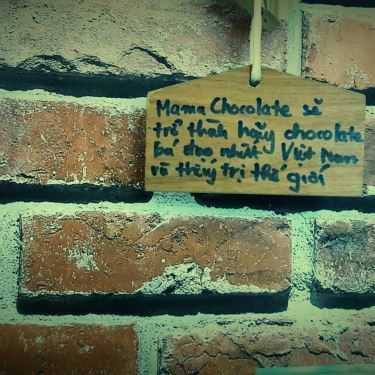 Mama Chocolate sẽ
trở thành hãng chocolate
bá đạo nhất Việt Nam
và thống trị thế giới